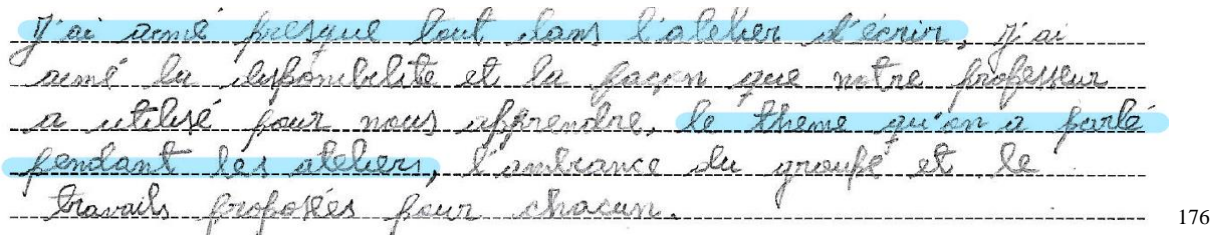 J'ai aimé presque tout dans l'atelier d'écrir, j'ai
aimé la disponibilite et la façon que notre professeur
a utilisé pour nous apprendre, le theme qu'on a parlé
pendant les ateliers, l'ambiance du groupe et le
travails proposées pour chacun.
176